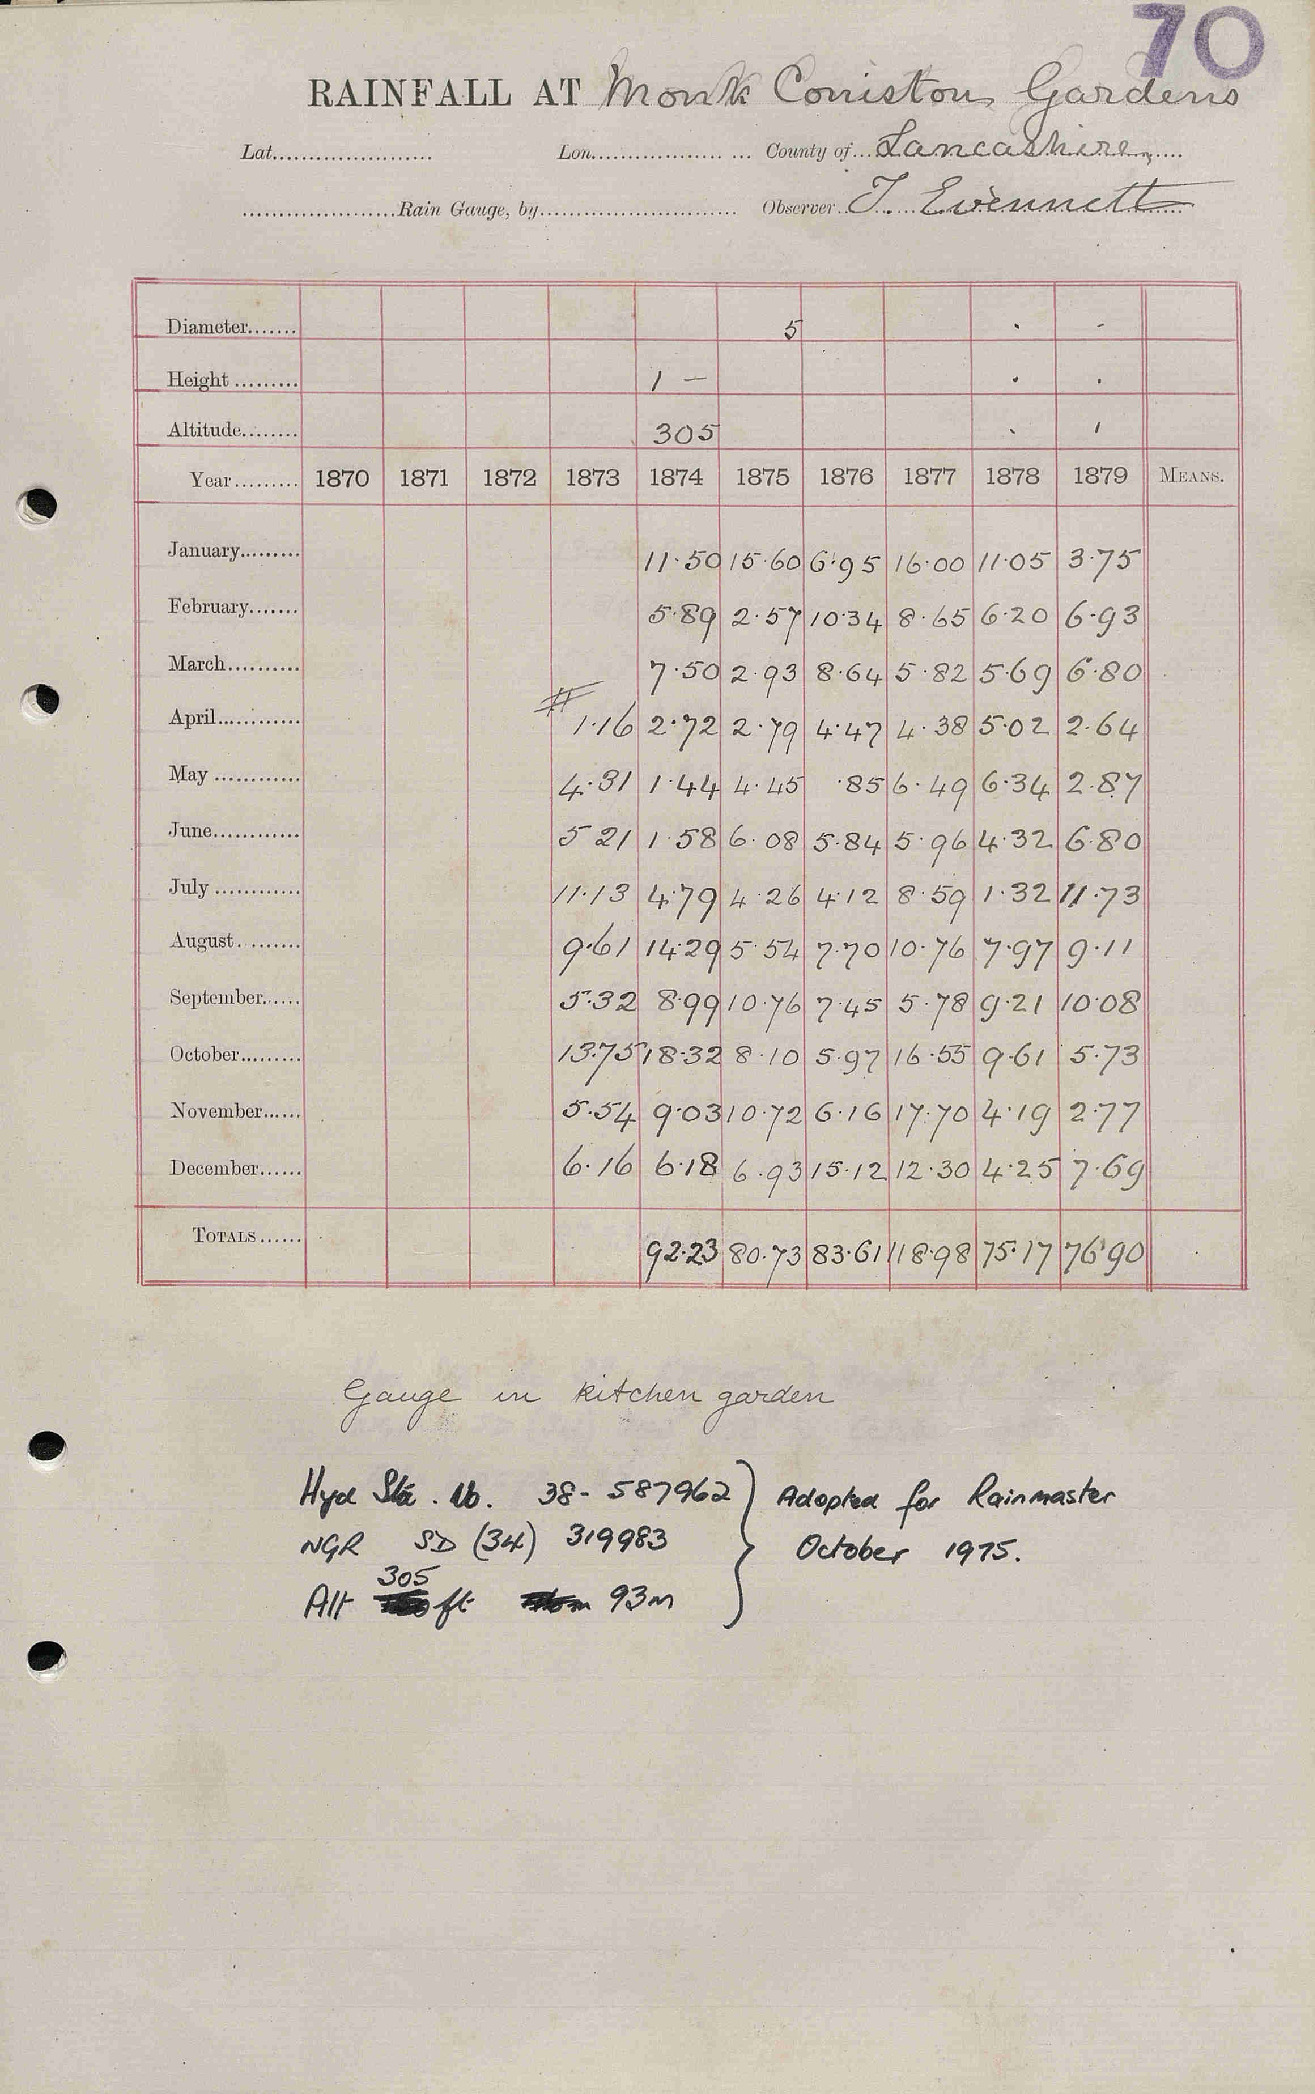 70
RAINFALL AT Monk Coniston Gardens
Lat...................... Lon.................. ... County of... Lancashire
.....................Rain Gauge, by........................... Observer.. T. Evennett
Diameter....... 5 . -
Height ......... 1 - . .
Altitude........ 305 . ı
Year......... 1870 1871 1872 1873 1874 1875 1876 1877 1878 1879 MEANS.
January......... 11·50 15·60 6·95 16·00 11·05 3·75
February....... 5·89 2·57 10·34 8·65 6·20 6·93
March.......... 7·50 2·93 8·64 5·82 5·69 6·80
April............ # 1·16 2·72 2·79 4·47 4·38 5·02 2·64
May ............ 4·31 1·44 4·45 ·85 6·49 6·34 2·87
June............ 5 21 1·58 6·08 5·84 5·96 4·32 6·80
July ............ 11·13 4·79 4·26 4·12 8·59 1·32 11·73
August......... 9·61 14·29 5·54 7·70 10·76 7·97 9·11
September...... 5·32 8·99 10·76 7·45 5·78 9·21 10·08
October......... 13·75 18·32 8·10 5·97 16·55 9·61 5·73
November...... 5·54 9·03 10·72 6·16 17·70 4·19 2·77
December...... 6·16 6·18 6·93 15·12 12·30 4·25 7·69
TOTALS...... 92·23 80·73 83·61 118·98 75·17 76·90
Gauge in kitchen garden
Hyd Sta. No. 38-587962 } Adopted for Rainmaster
NGR SD (34) 319983 October 1975.
305
Alt ft 93m